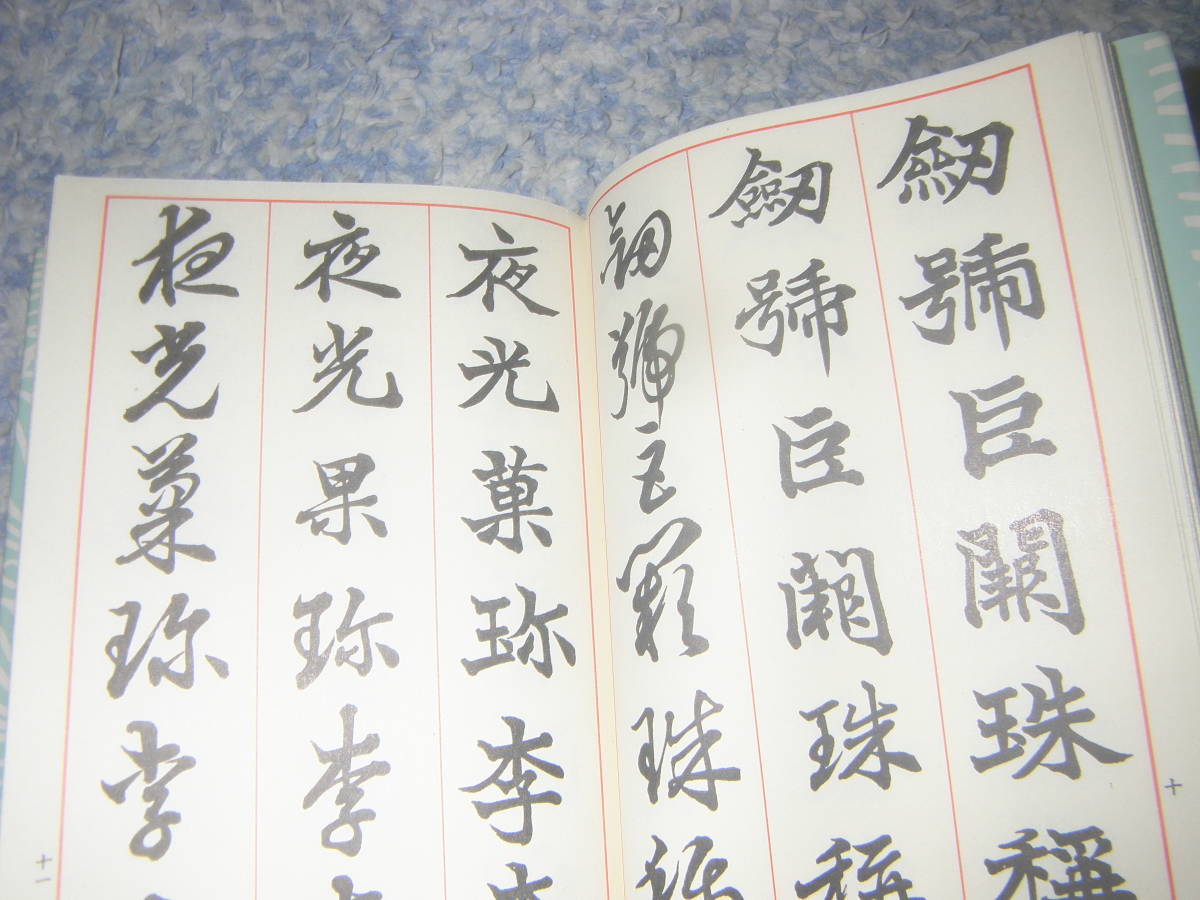 劔號巨闕珠稱
劔號巨闕珠稱
劔號巨闕珠稱
十
夜光菓珎李
夜光果珎李
夜光菓珎李
十一